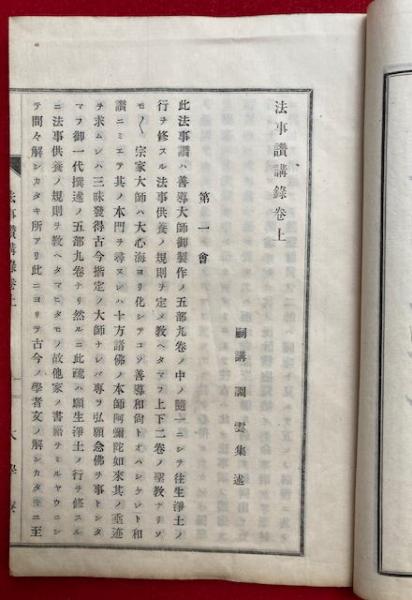 法事讃講錄卷上
嗣講 調雲集述
第一會
此法事讃ハ善導大師御製作ノ五部九卷ノ中ノ隨一ニシテ往生淨土ノ
行ヲ修スル法事供養ノ規則ヲ定メ敎ヘタマフ上下二卷ノ聖敎ナリソ
モ〱宗家大師ハ大心海ヨリ化シテコソ善導和尙トオハシケレト和
讃ニミエテ其ノ本門ヲ尋ヌレハ十方諸佛ノ本師阿彌陀如來其ノ垂迹
ヲ求ムレハ三昧發得古今揩定ノ大師ナレバ專ラ弘願念佛ヲ事トシタ
マフ御一代撰述ノ五部九卷ナリ然ルニ此疏ハ願生淨土ノ行ヲ修スル
ニ法事供養ノ規則ヲ敎ヘタマヒタモノ故他家ノ書籍ヲミルヤウニシ
テ間々解シカタキ所アリ此ニヨリテ古今ノ學者文ノ解シカタキニ至
法事讃講錄卷上
大學寮